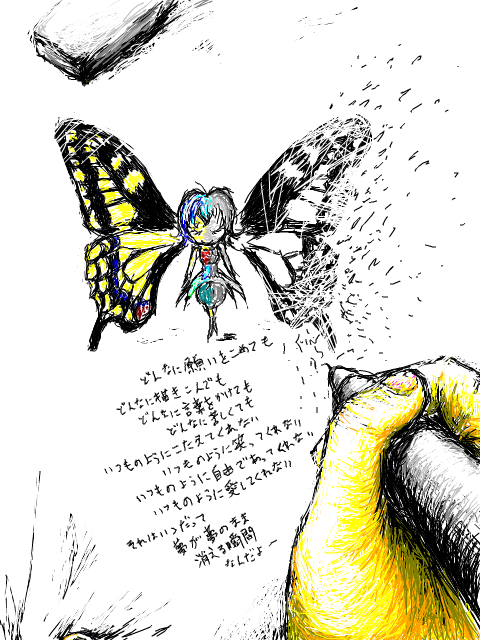 どんなに願いをこめても
どんなに描きこんでも
どんなに言葉をかけても
どんなに楽しくても
いつものようにこたえてくれない
いつものように笑ってくれない
いつものように自由であってくれない
いつものように愛してくれない
それはいつだって
夢が夢のまま
消える瞬間
なんだよー